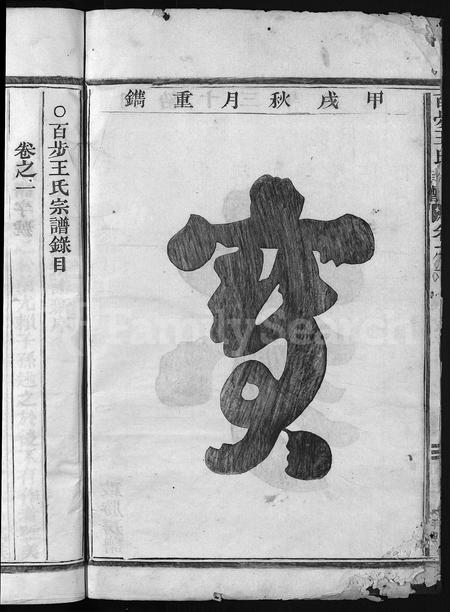 甲戌秋月重鐫
寶
○百步王氏宗譜錄目
卷之一
FamilySearch